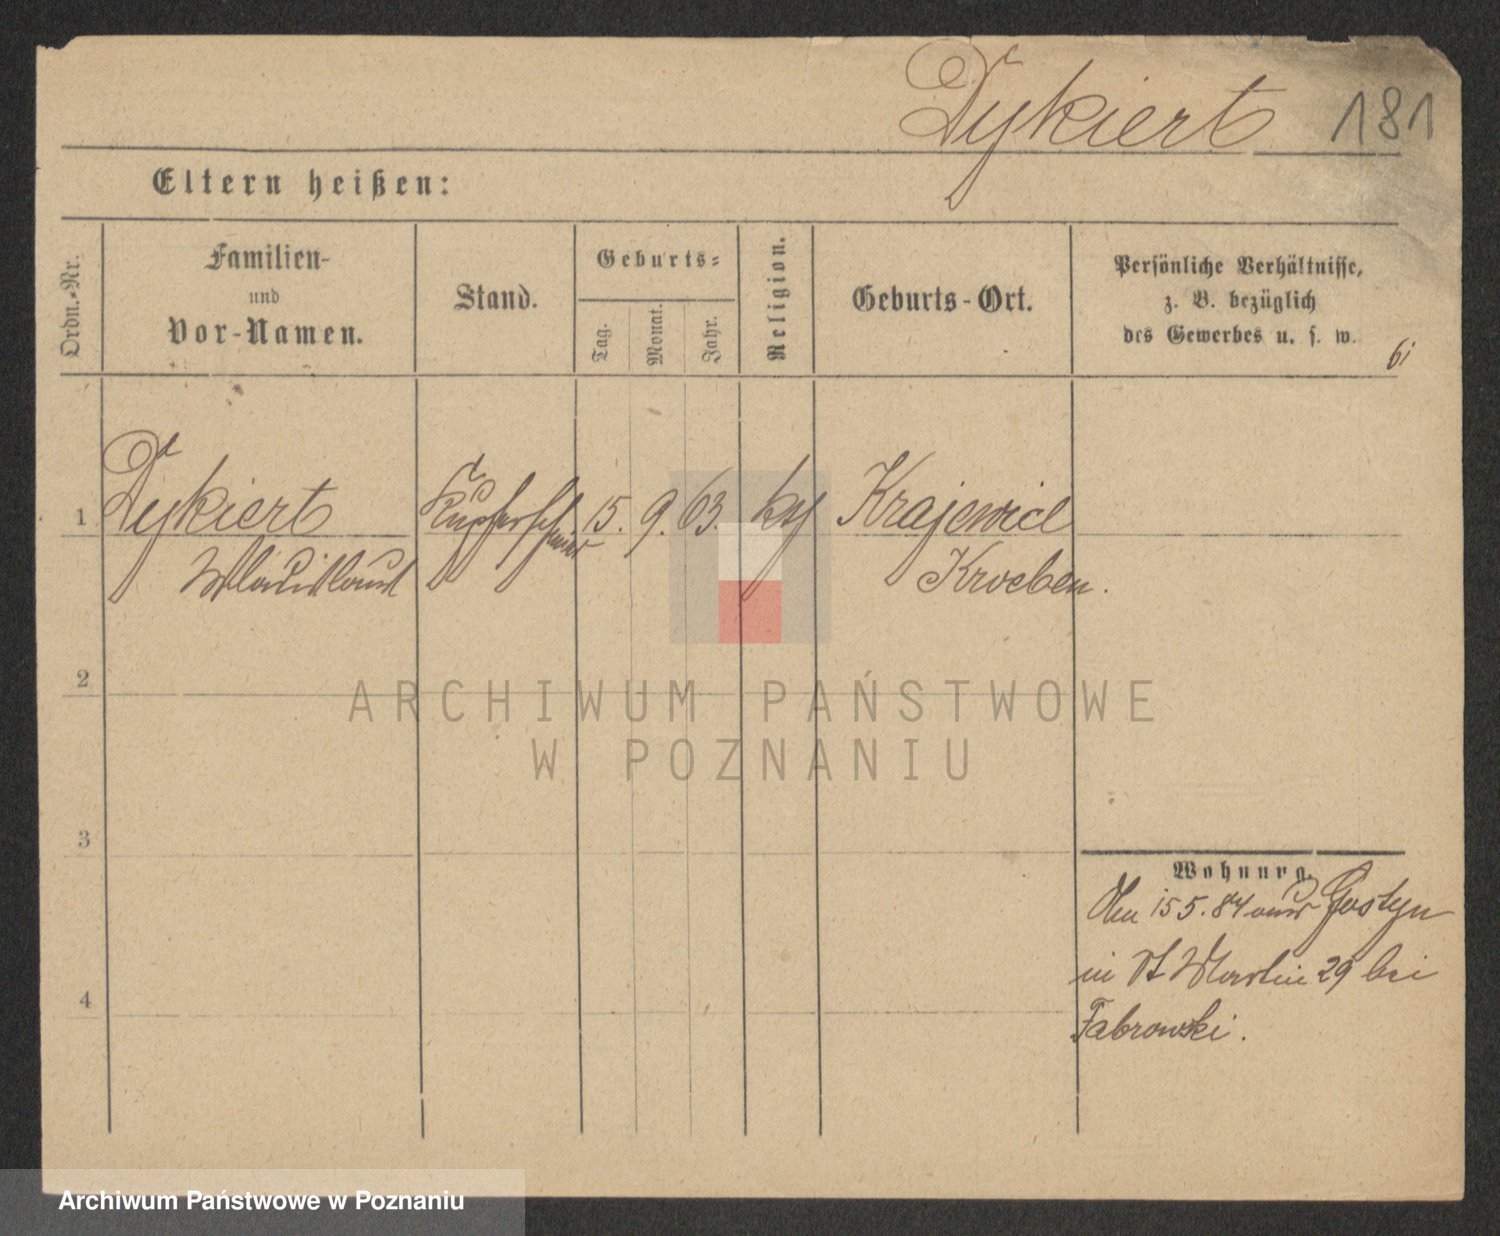 Dykiert 181
Eltern heißen:
Ordn.-Nr.
Familien-
und
Vor-Namen.
Stand.
Geburts-
Tag.
Monat.
Jahr.
Religion.
Geburts-Ort.
Persönliche Verhältnisse,
z. B. bezüglich
des Gewerbes u. s. w.
1 Dykiert Kupferschmied 15. 9. 63. Krajewice
Wladislaus Kroeben.
2
3
4
Wohnung.
15 5. 84 aus Gostyn
in St Martin 29 bei
Fabrowski.
ARCHIWUM PAŃSTWOWE
W POZNANIU
Archiwum Państwowe w Poznaniu